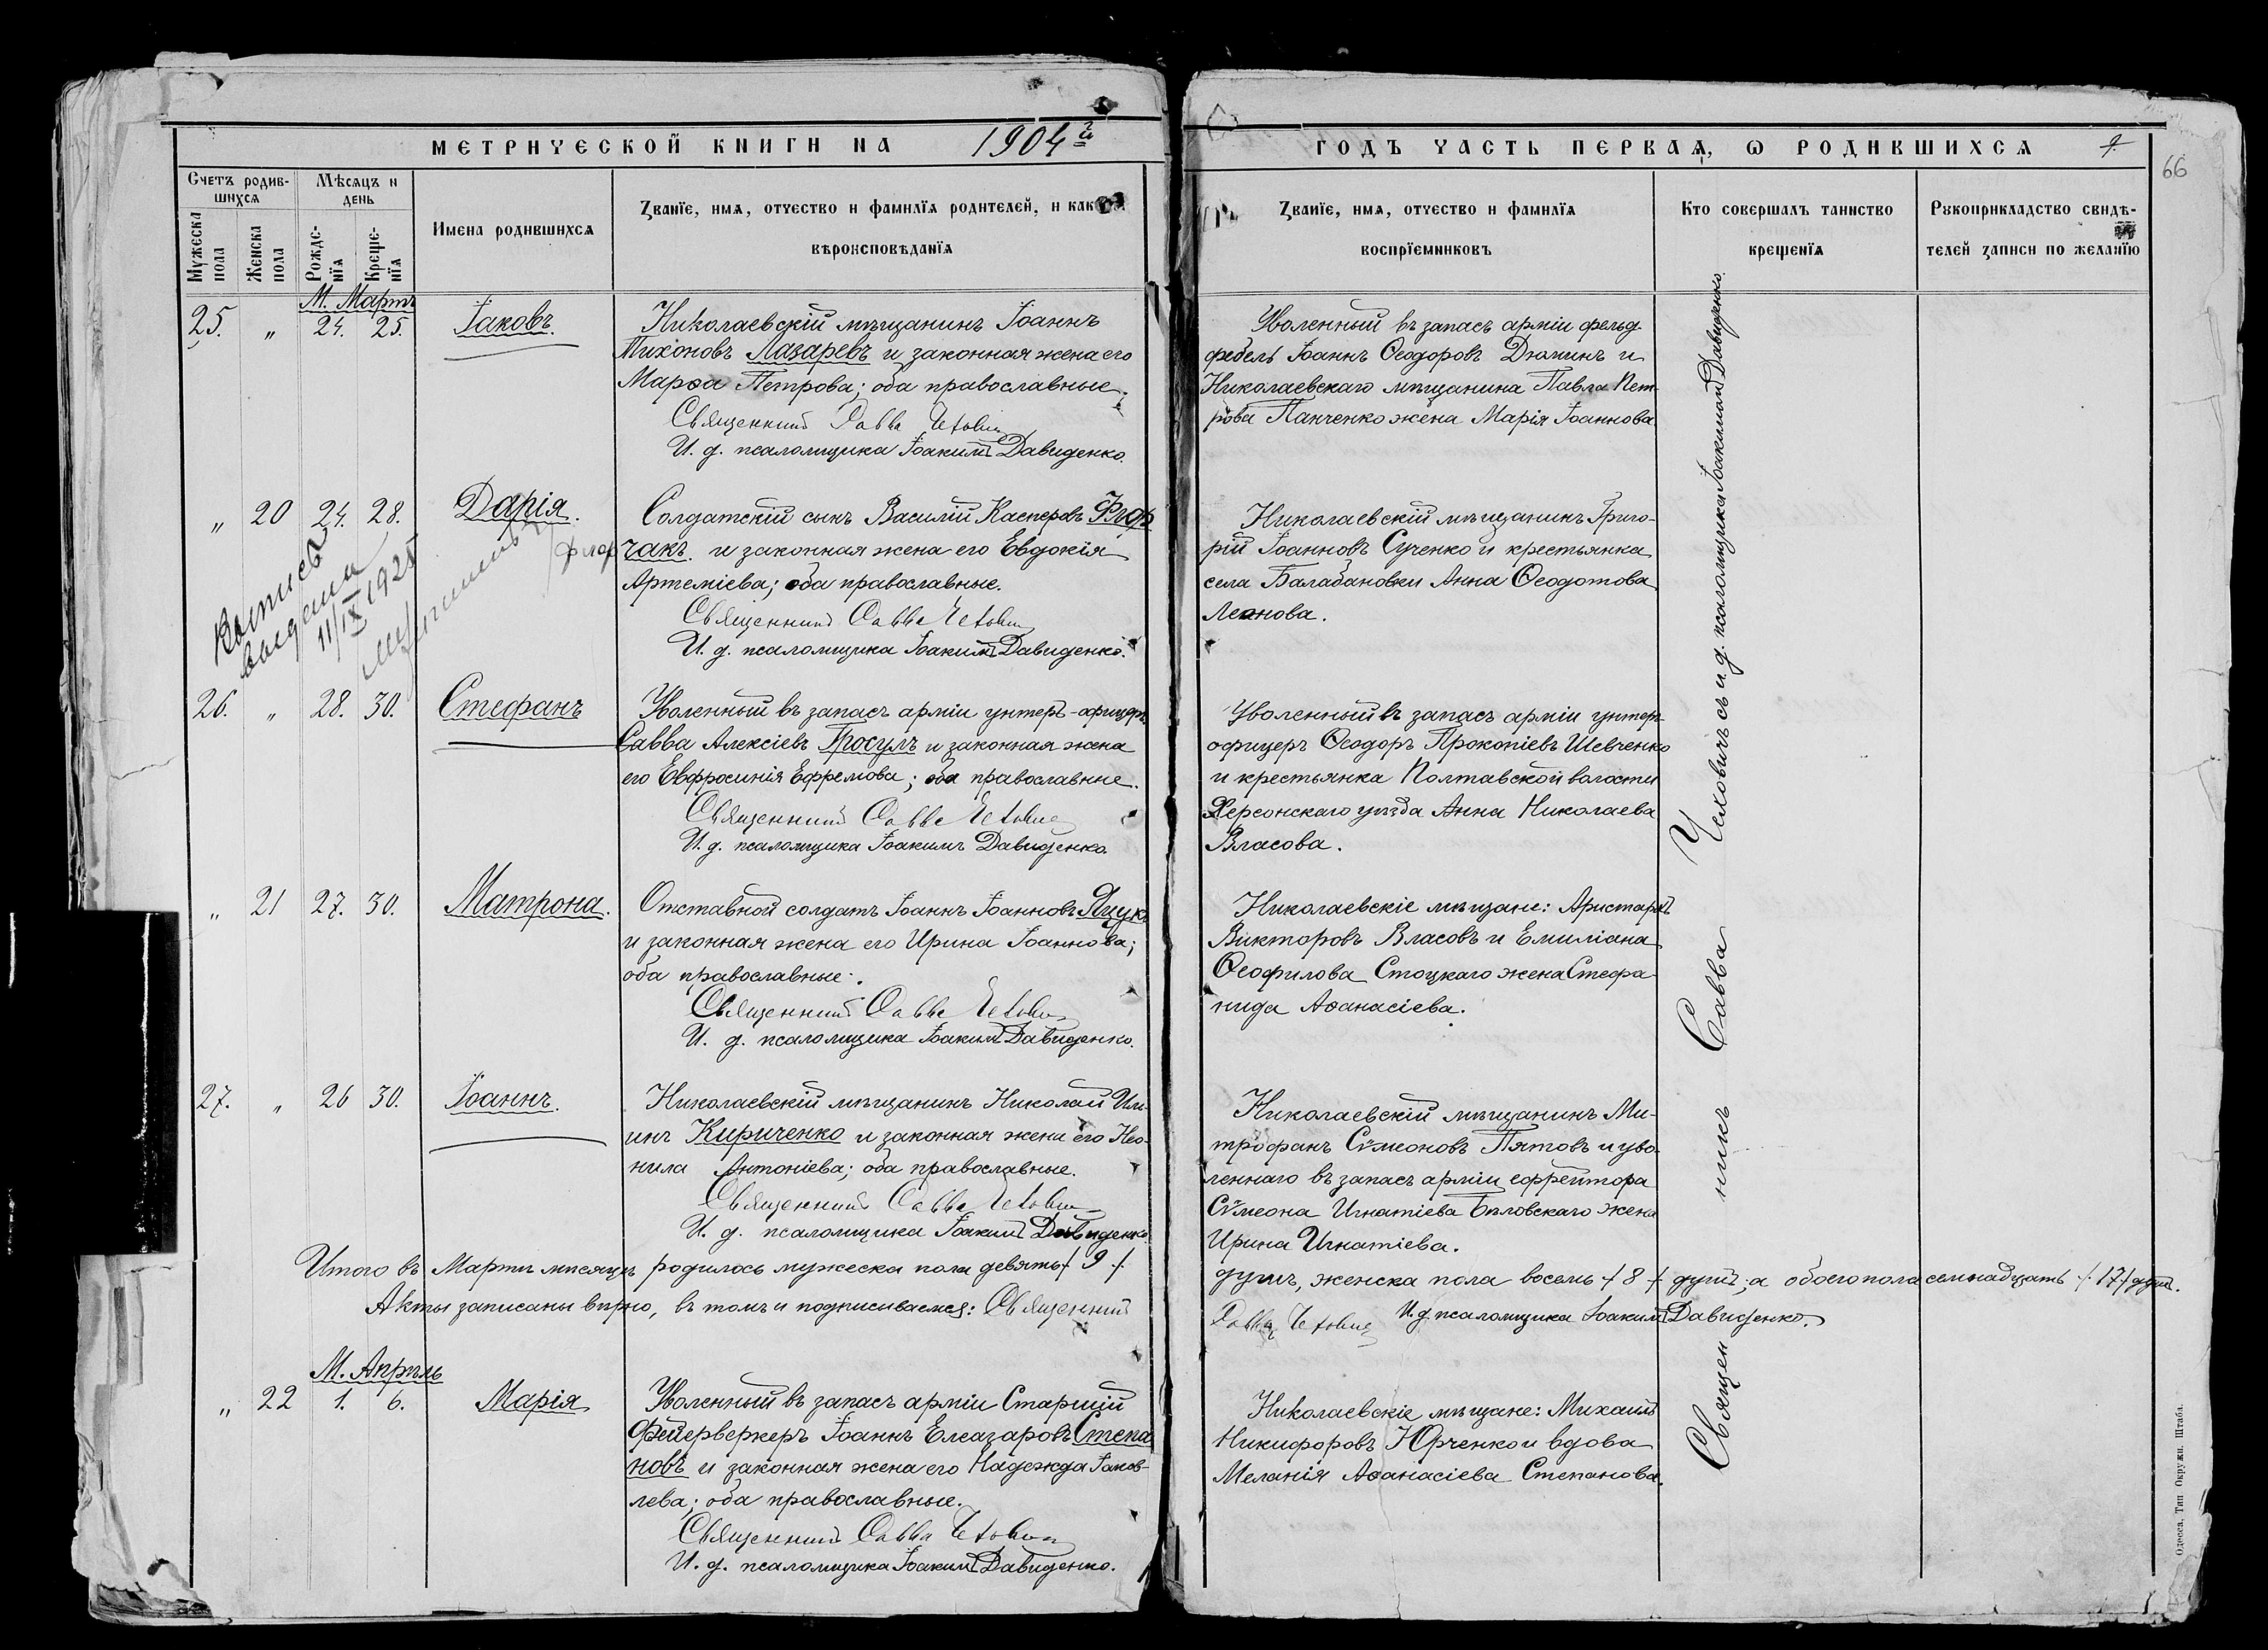 МЕТРИЧЕСКОЙ КНИГИ НА 1904й
ГОДЪ ЧАСТЬ ПЕРВАЯ, Ѡ РОДИВШИХСЯ
66
Счетъ родив-
шихся
Мужеска пола
Женска пола
Мѣсяцъ и
день
Рожде-
нїя
Креще-
нїя
Имена родившихся
Званїе, имя, отчество и фамилїя родителей, и какого
вѣроисповѣданїя
Званїе, имя, отчество и фамилїя
воспрїемниковъ
Кто совершалъ таинство
крещенїя
Рукоприкладство свидѣ-
телей записи по желанїю
М. Мартъ
25. " 24. 25. Іаковъ.
Николаевскій мѣщанинъ Іоаннъ
Тихоновъ Лазаревъ и законная жена его
Марѳа Петрова; оба православные.
Священникъ Савва Чеховичъ
И. д. псаломщика Іоакимъ Давиденко.
Уволенный въ запасъ арміи фельд-
фебель Іоаннъ Ѳеодоровъ Дюминъ и
Николаевскаго мѣщанина Павла Пет-
рова Панченко жена Марія Іоаннова.
" 20 24. 28. Дарія.
Солдатскій сынъ Василій Касперовъ
чакъ. и законная жена его Евдокія
Артеміева; оба православные.
Священникъ Савва Чеховичъ
И. д. псаломщика Іоакимъ Давиденко.
Николаевскій мѣщанинъ Григо-
рій Іоанновъ Сученко и крестьянка
села Балабановки Анна Ѳеодотова
Леонова.
выдана
11/IX 1925
26. " 28. 30. Стефанъ
Уволенный въ запасъ арміи унтеръ-офицеръ
Савва Алексіевъ Гросулъ и законная жена
его Евфросинія Ефремова; оба православные.
Священникъ Савва Чеховичъ
И. д. псаломщика Іоакимъ Давиденко.
Уволенный въ запасъ арміи унтеръ-
офицеръ Ѳеодоръ Прокопіевъ Шевченко
и крестьянка Полтавской волости
Херсонскаго уѣзда Анна Николаева
Власова.
" 21 27. 30. Матрона.
Отставной солдатъ Іоаннъ Іоанновъ Яцукъ
и законная жена его Ирина Іоаннова;
оба православные.
Священникъ Савва Чеховичъ
И. д. псаломщика Іоакимъ Давиденко.
Николаевскіе мѣщане: Аристархъ
Викторовъ Власовъ и Емиліана
Ѳеофилова Стоцкаго жена Стефа-
нида Аѳанасіева.
27. " 26 30. Іоаннъ.
Николаевскій мѣщанинъ Николай Иль-
инъ Кириченко и законная жена его Нео-
нила Антоніева; оба православные.
Священникъ Савва Чеховичъ
И. д. псаломщика Іоакимъ Давиденко.
Николаевскій мѣщанинъ Ми-
трофанъ Сѵмеоновъ Пятовъ и уво-
леннаго въ запасъ арміи ефрейтора
Сѵмеона Игнатіева Бѣловскаго жена
Ирина Игнатіева.
Итого въ Мартѣ мѣсяцѣ родилось мужеска пола девять /. 9 ./ душъ, женска пола восемь /. 8 ./ душъ; а обоего пола семнадцать /. 17 ./ душъ.
Акты записаны вѣрно, въ томъ и подписываемся: Священникъ Савва Чеховичъ И. д. псаломщика Іоакимъ Давиденко.
М. Апрѣль
" 22 1. 6. Марія
Уволенный въ запасъ арміи Старшій
Фейерверкеръ Іоаннъ Елеазаровъ Степа
новъ и законная жена его Надежда Іаков-
лева; оба православные.
Священникъ Савва Чеховичъ
И. д. псаломщика Іоакимъ Давиденко.
Николаевскіе мѣщане: Михаилъ
Никифоровъ Юрченко и вдова
Меланія Аѳанасіева Степанова.
Священникъ Савва Чеховичъ съ и. д. псаломщика Іоакимомъ Давиденко.
Одесса, Тип. Окружн. Штаба.